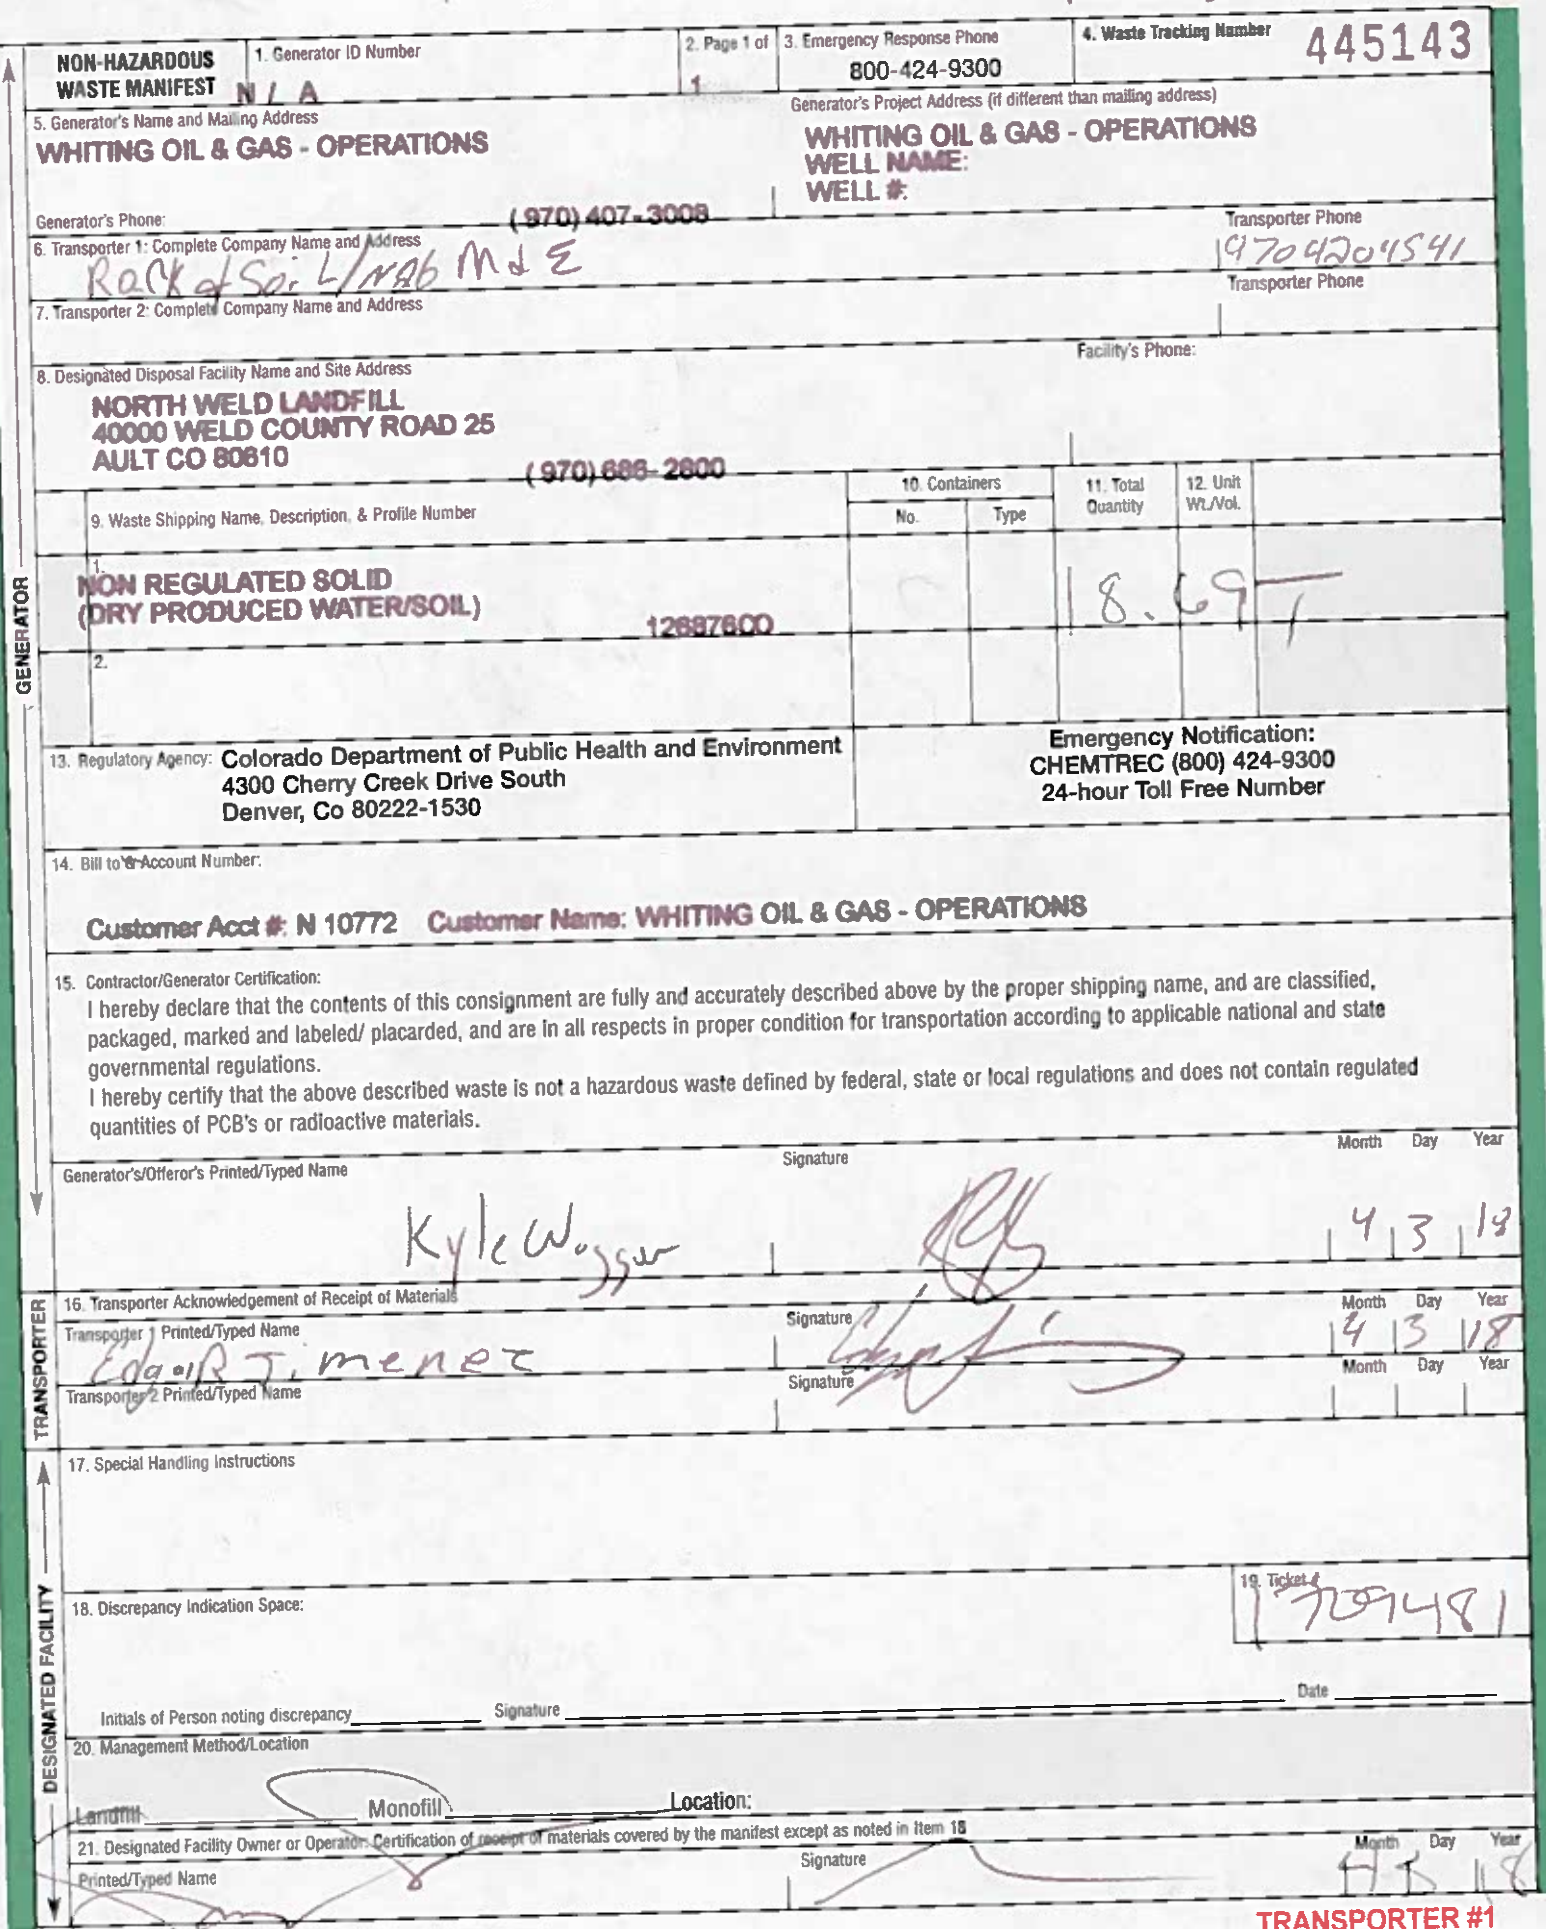 NON-HAZARDOUS
WASTE MANIFEST
1. Generator ID Number
N / A
2. Page 1 of
1
3. Emergency Response Phone
800-424-9300
4. Waste Tracking Number
445143
5. Generator's Name and Mailing Address
WHITING OIL & GAS - OPERATIONS
Generator's Project Address (if different than mailing address)
WHITING OIL & GAS - OPERATIONS
WELL NAME:
WELL #:
Generator's Phone:
(970) 407-3008
6. Transporter 1: Complete Company Name and Address
Rack & Soil / NAb M&E
Transporter Phone
9704204541
7. Transporter 2: Complete Company Name and Address
Transporter Phone
8. Designated Disposal Facility Name and Site Address
Facility's Phone:
NORTH WELD LANDFILL
40000 WELD COUNTY ROAD 25
AULT CO 80610
(970) 686-2800
9. Waste Shipping Name, Description, & Profile Number
10. Containers
No.
Type
11. Total
Quantity
12. Unit
Wt./Vol.
1.
NON REGULATED SOLID
(DRY PRODUCED WATER/SOIL)
12687600
18.69 T
2.
13. Regulatory Agency: Colorado Department of Public Health and Environment
4300 Cherry Creek Drive South
Denver, Co 80222-1530
Emergency Notification:
CHEMTREC (800) 424-9300
24-hour Toll Free Number
14. Bill to & Account Number:
Customer Acct #: N 10772 Customer Name: WHITING OIL & GAS - OPERATIONS
15. Contractor/Generator Certification:
I hereby declare that the contents of this consignment are fully and accurately described above by the proper shipping name, and are classified,
packaged, marked and labeled/ placarded, and are in all respects in proper condition for transportation according to applicable national and state
governmental regulations.
I hereby certify that the above described waste is not a hazardous waste defined by federal, state or local regulations and does not contain regulated
quantities of PCB's or radioactive materials.
Generator's/Offeror's Printed/Typed Name
Signature
Month Day Year
Kyle Waggoner
4 3 18
16. Transporter Acknowledgement of Receipt of Materials
Transporter 1 Printed/Typed Name
Signature
Month Day Year
Edgar Jimenez
4 3 18
Transporter 2 Printed/Typed Name
Signature
Month Day Year
17. Special Handling Instructions
18. Discrepancy Indication Space:
19. Ticket #
709481
Initials of Person noting discrepancy
Signature
Date
20. Management Method/Location
Landfill
Monofill
Location:
21. Designated Facility Owner or Operator: Certification of receipt of materials covered by the manifest except as noted in Item 18
Printed/Typed Name
Signature
Month Day Year
4 3 18
GENERATOR
TRANSPORTER
DESIGNATED FACILITY
TRANSPORTER #1